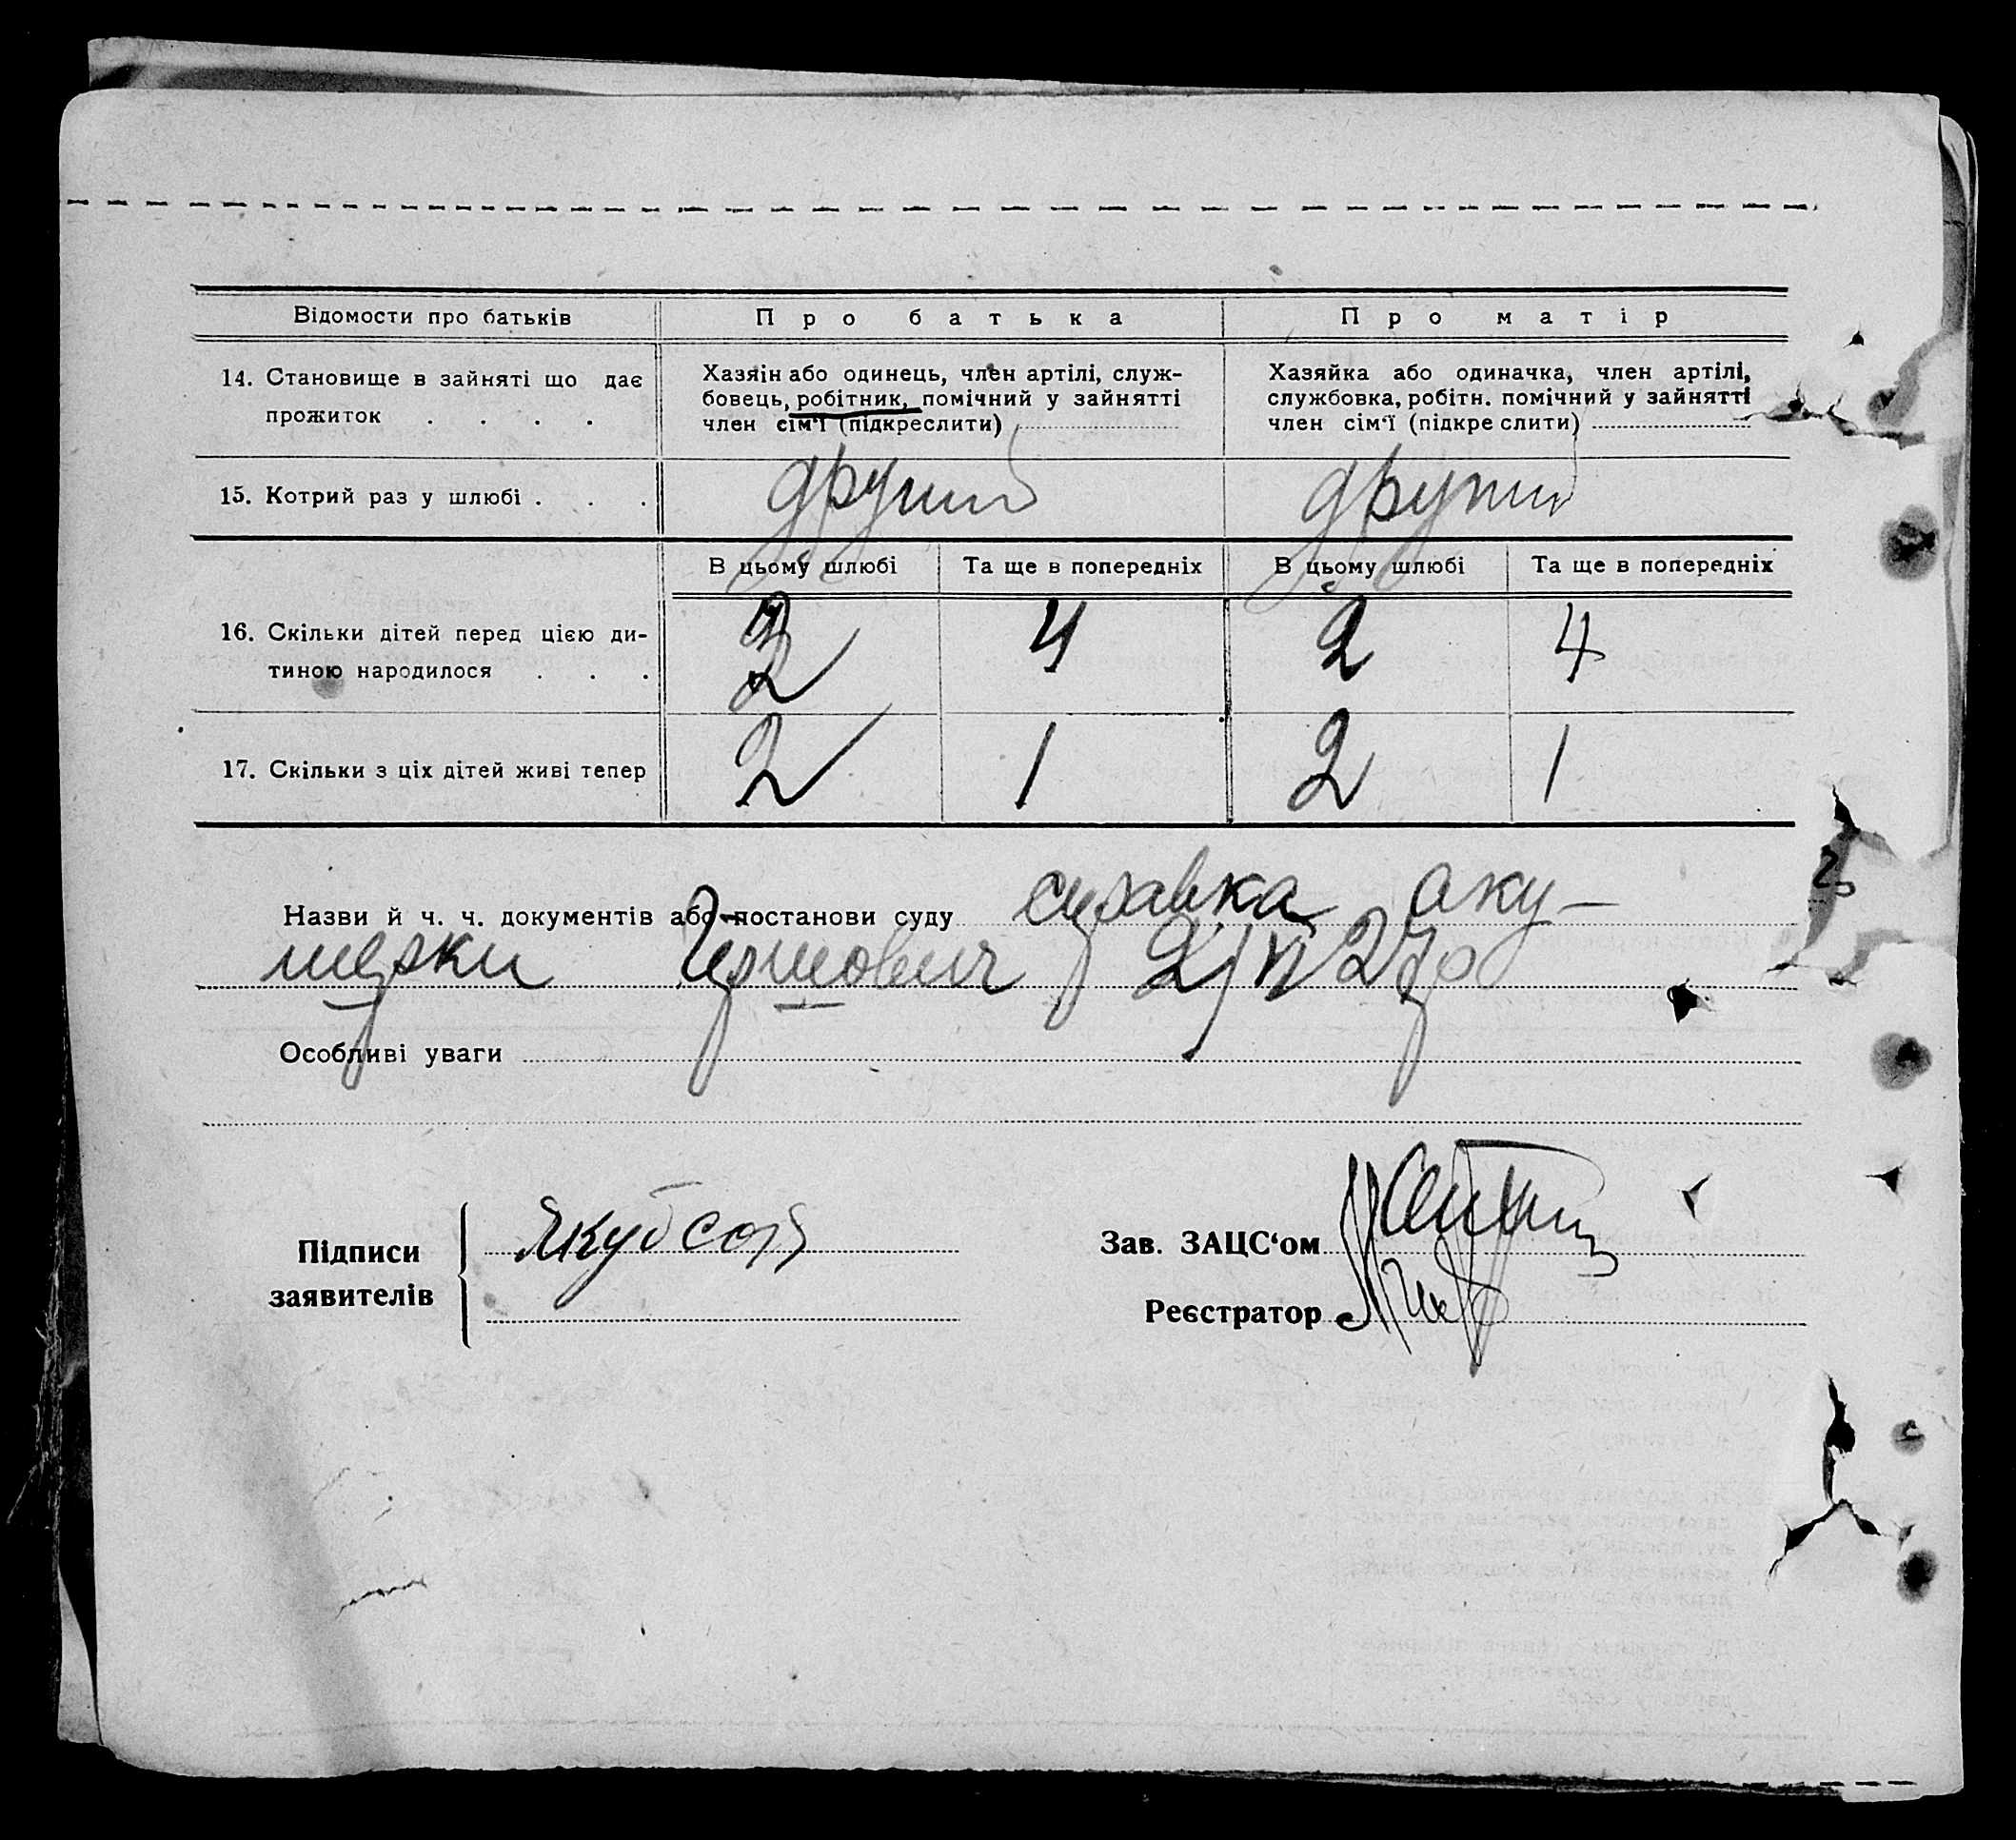 Відомости про батьків
Про батька
Про матір
14. Становище в зайняті що дає
прожиток . . . .
Хазяін або одинець, член артілі, служ-
бовець, робітник, помічний у зайнятті
член сім'ї (підкреслити)
Хазяйка або одиначка, член артілі,
службовка, робітн. помічний у зайнятті
член сім'ї (підкре слити)
15. Котрий раз у шлюбі . . .
другий
другий
В цьому шлюбі
Та ще в попередніх
В цьому шлюбі
Та ще в попередніх
16. Скільки дітей перед цією ди-
тиною народилося . . .
2
4
2
4
17. Скільки з ціх дітей живі тепер
2
1
2
1
Назви й ч. ч. документів або постанови суду справка аку-
шерки Гершович
Особливі уваги
Підписи
заявителів
Якубсон
Зав. ЗАЦС'ом
Реєстратор